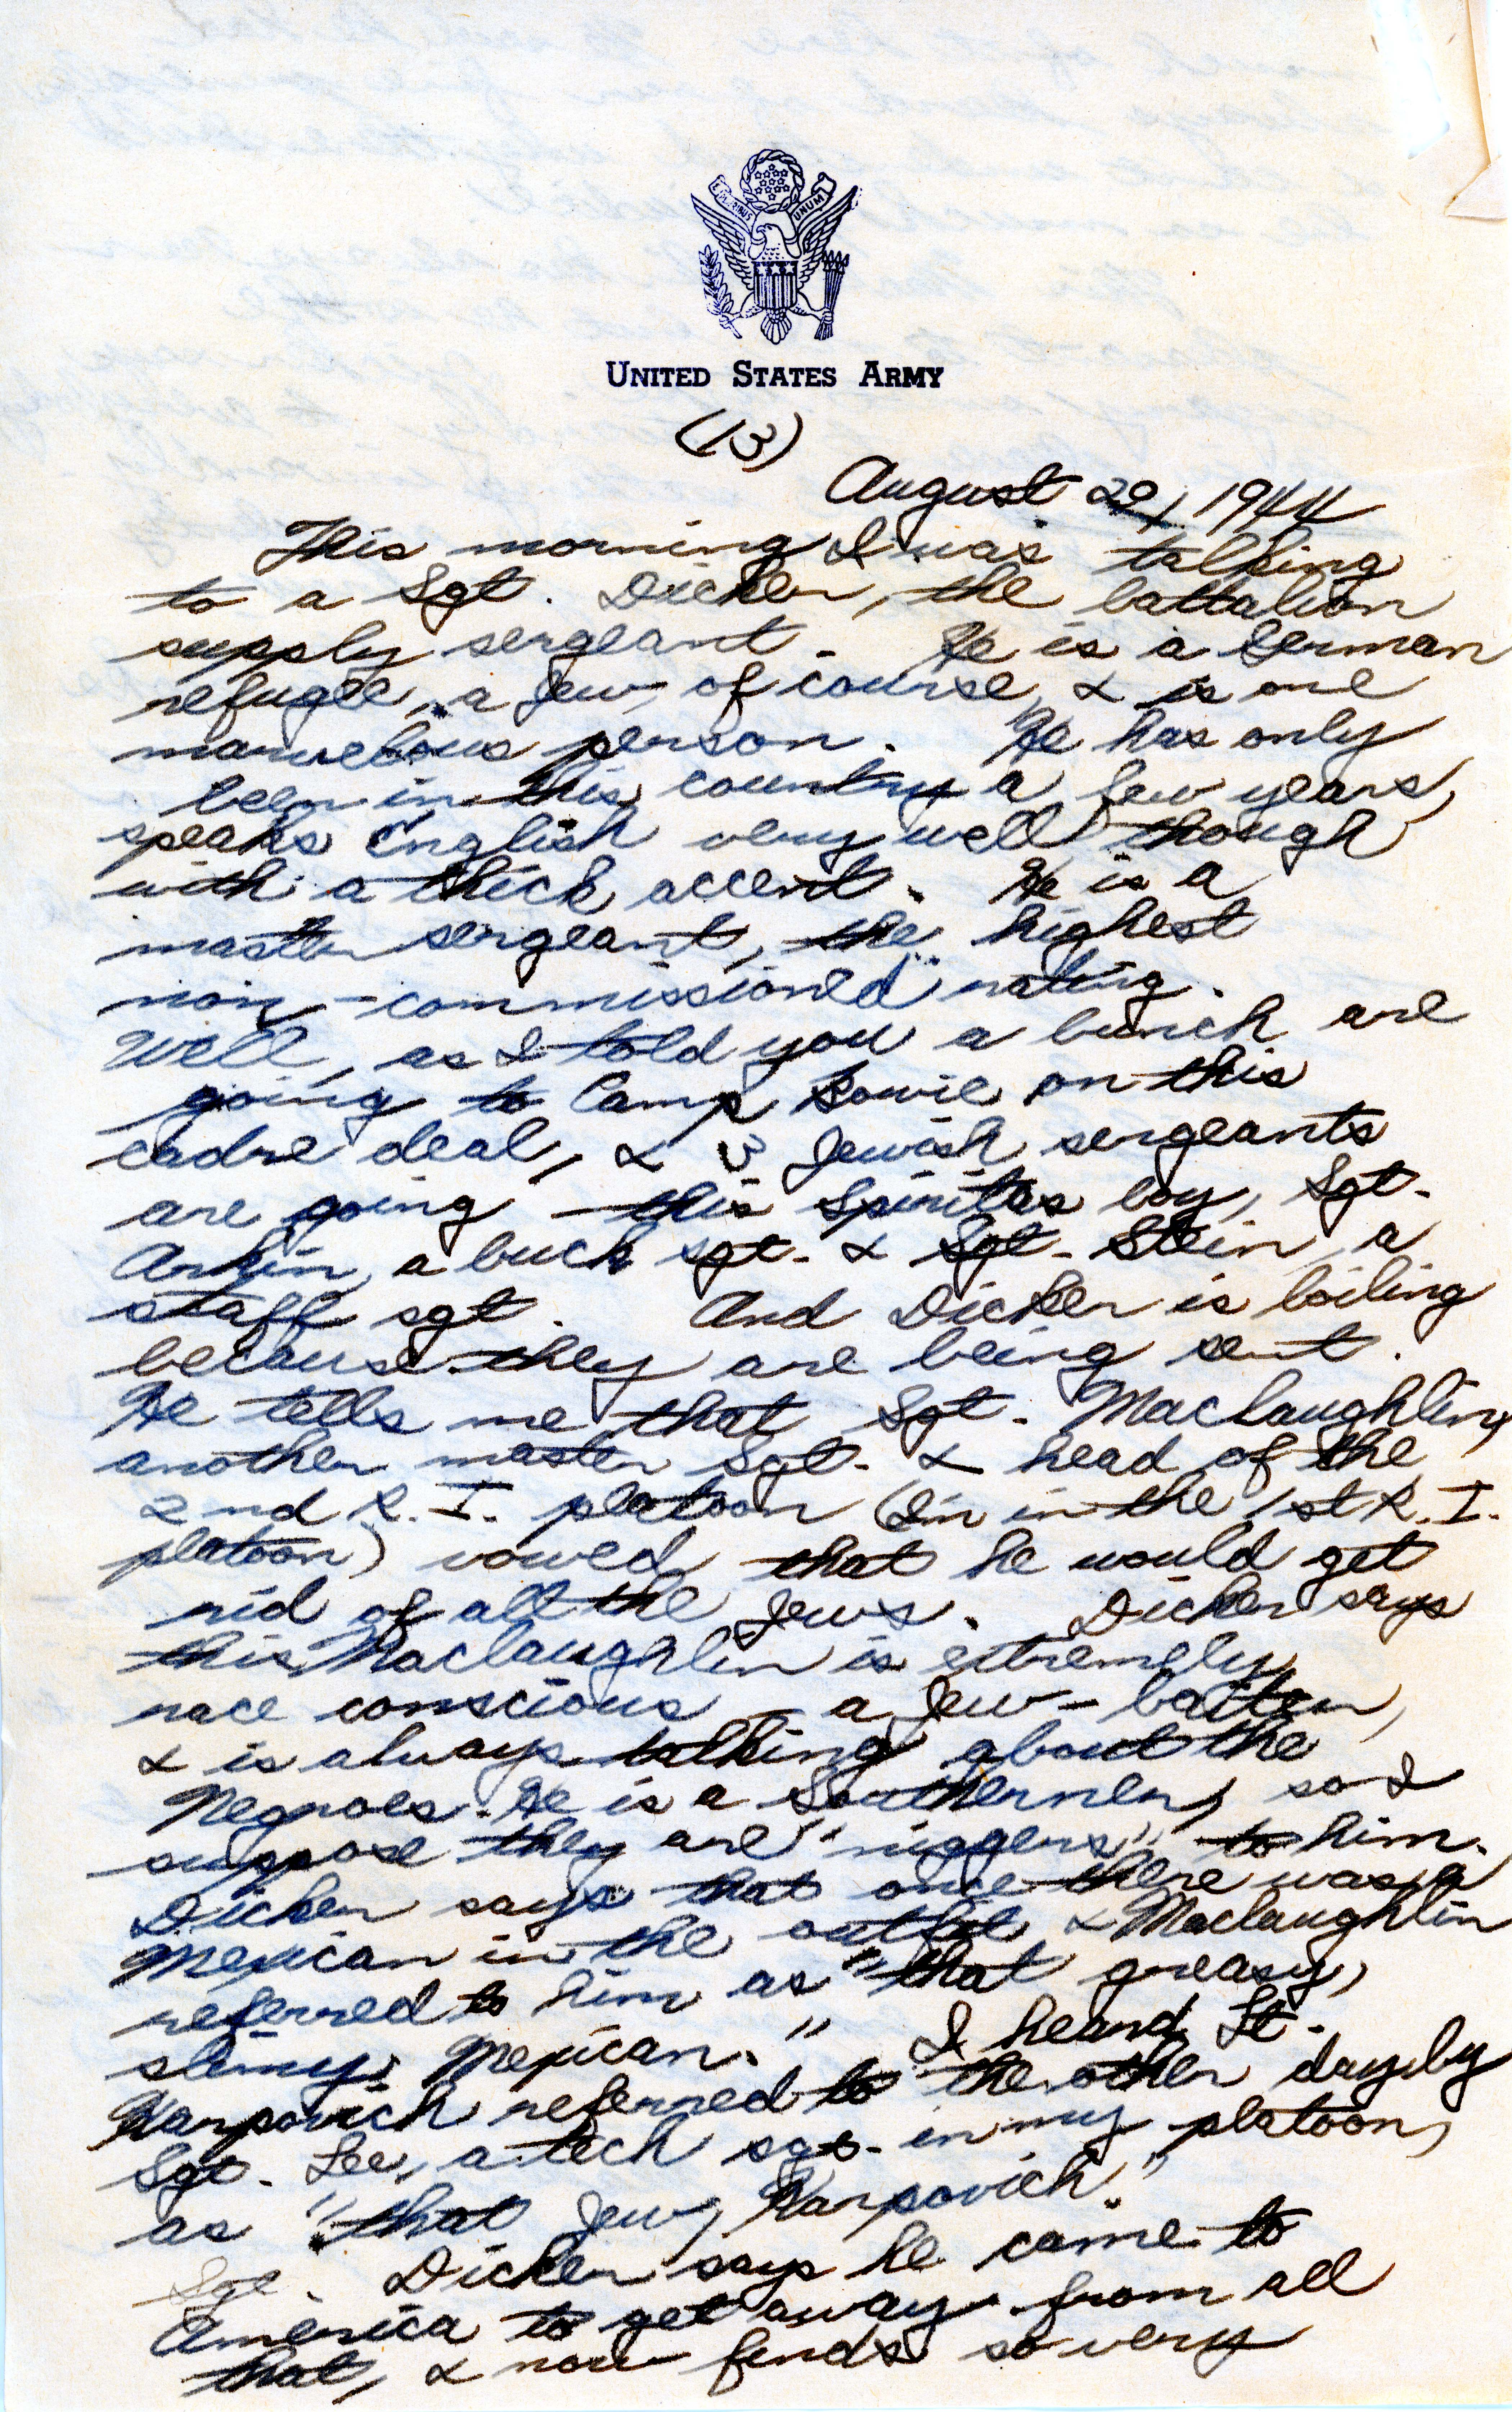 E PLURIBUS UNUM
UNITED STATES ARMY
(13)
August 29, 1944
This morning I was talking
to a Sgt. Dicker, the battalion
supply sergeant. He is a German
refugee, a Jew, of course, & is one
marvelous person. He has only
been in this country a few years,
speaks English very well though
with a thick accent. He is a
master sergeant, the highest
non-commissioned rating.
Well, as I told you a bunch are
going to Camp Bowie on this
cadre deal, & 3 Jewish sergeants
are going - this Spinitas boy, Sgt.
Arkin, a buck sgt. & Sgt. Stein, a
staff sgt. And Dicker is boiling
because they are being sent.
He tells me that Sgt. Maclaughlin,
another master Sgt. & head of the
2nd R.I. platoon (I'm in the 1st R.I.
platoon) vowed that he would get
rid of all the Jews. Dicker says
this Maclaughlin is extremely
race conscious - a Jew-baiter,
& is always talking about the
Negroes. He is a Southerner, so I
suppose they are "niggers" to him.
Dicker says that once there was a
Mexican in the outfit & Maclaughlin
referred to him as "that greasy,
slimy, Mexican." I heard Lt.
Karpovich referred to the other day by
Sgt. Lee, a tech sgt. in my platoon,
as "that Jew, Karpovich."
Sgt. Dicker says he came to
America to get away from all
that, & now finds so very